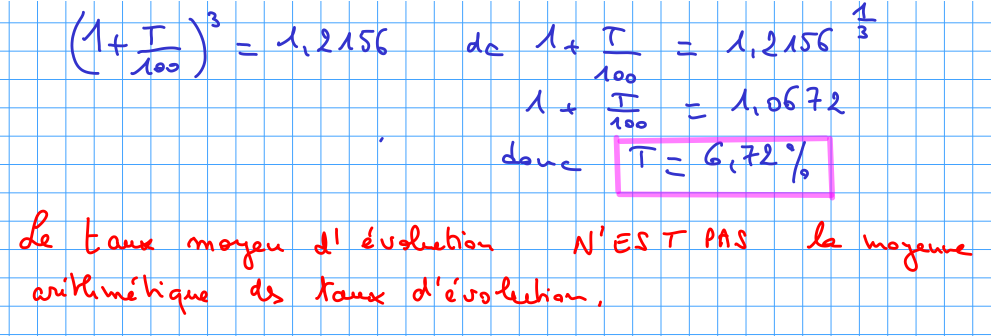 (1 + T/100)³ = 1,2156 dc 1 + T/100 = 1,2156^(1/3)
1 + T/100 = 1,0672
donc T = 6,72 %
Le taux moyen d'évolution N'EST PAS la moyenne
arithmétique des taux d'évolution.